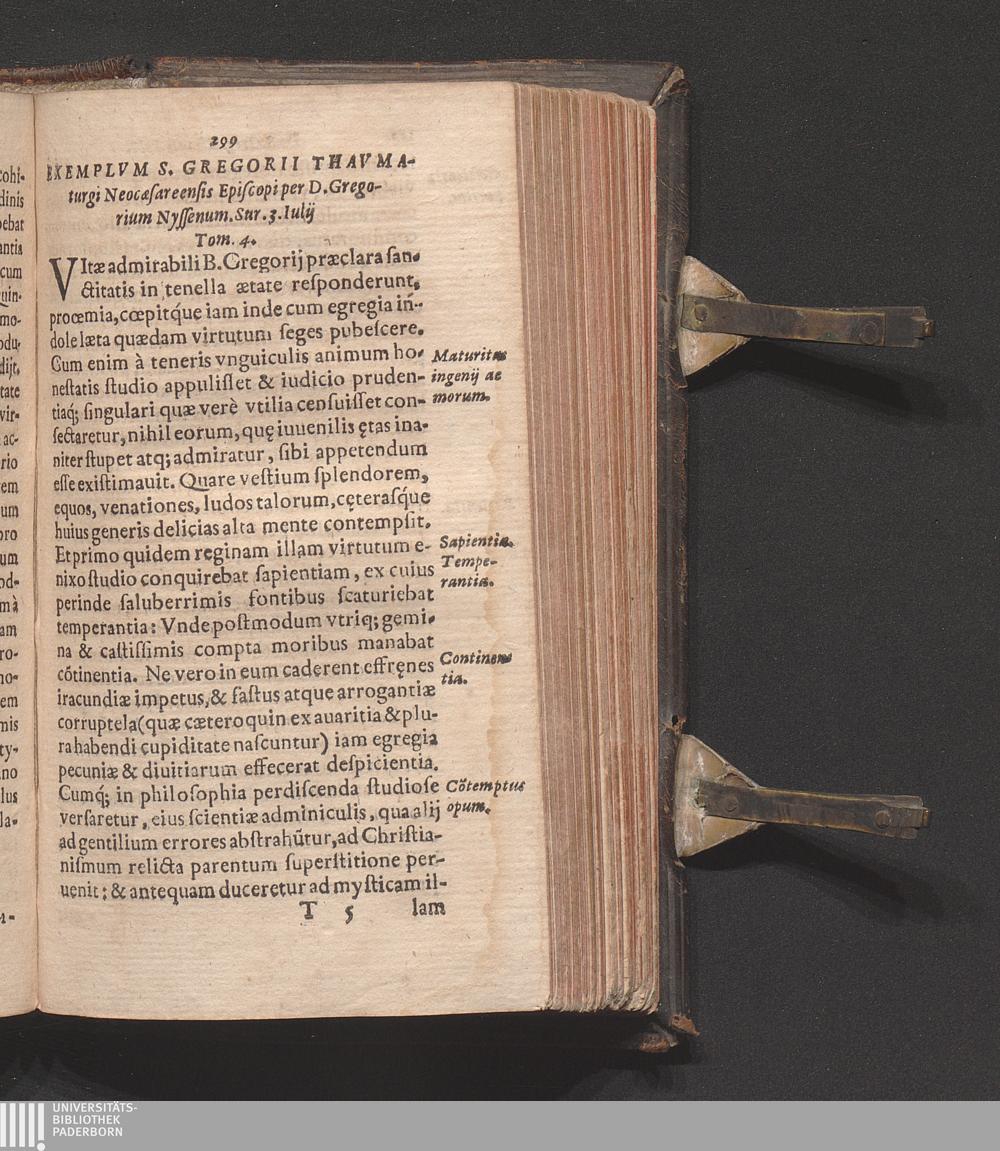 299
EXEMPLVM S. GREGORII THAVMA-
turgi Neocæsareensis Episcopi per D. Grego-
rium Nyssenum. Sur. 3. Iulij
Tom. 4.
VItæ admirabili B. Gregorij præclara san-
ctitatis in tenella ætate responderunt,
proœmia, cœpitq́ue iam inde cum egregia in-
dole læta quædam virtutum seges pubescere.
Cum enim à teneris vnguiculis animum ho-
nestatis studio appulisset & iudicio pruden-
tiaq́; singulari quæ verè vtilia censuisset con-
sectaretur, nihil eorum, quę iuuenilis ętas ina-
niter stupet atq; admiratur, sibi appetendum
esse existimauit. Quare vestium splendorem,
equos, venationes, ludos talorum, cęterasq́ue
huius generis delicias alta mente contempsit.
Et primo quidem reginam illam virtutum e-
nixo studio conquirebat sapientiam, ex cuius
perinde saluberrimis fontibus scaturiebat
temperantia: Vnde postmodum vtriq; gemi-
na & castissimis compta moribus manabat
cõtinentia. Ne vero in eum caderent effręnes
iracundiæ impetus, & fastus atque arrogantiæ
corruptela (quæ cæteroquin ex auaritia & plu-
ra habendi cupiditate nascuntur) iam egregia
pecuniæ & diuitiarum effecerat despicientia.
Cumq́; in philosophia perdiscenda studiose
versaretur, eius scientiæ adminiculis, qua alij
ad gentilium errores abstrahũtur, ad Christia-
nismum relicta parentum superstitione per-
uenit: & antequam duceretur ad mysticam il-
T 5 lam
Maturitas
ingenij ac
morum.
Sapientia.
Tempe-
rantia.
Continen-
tia.
Cõtemptus
opum.
cohi-
dinis
ebat
antia
cum
quin-
mo-
odu-
dijt,
tate
vir-
ac-
rio
em
um
oro
um
od-
mà
am
ro-
no-
em
mis
ty-
no
lus
la-
UNIVERSITÄTS-
BIBLIOTHEK
PADERBORN